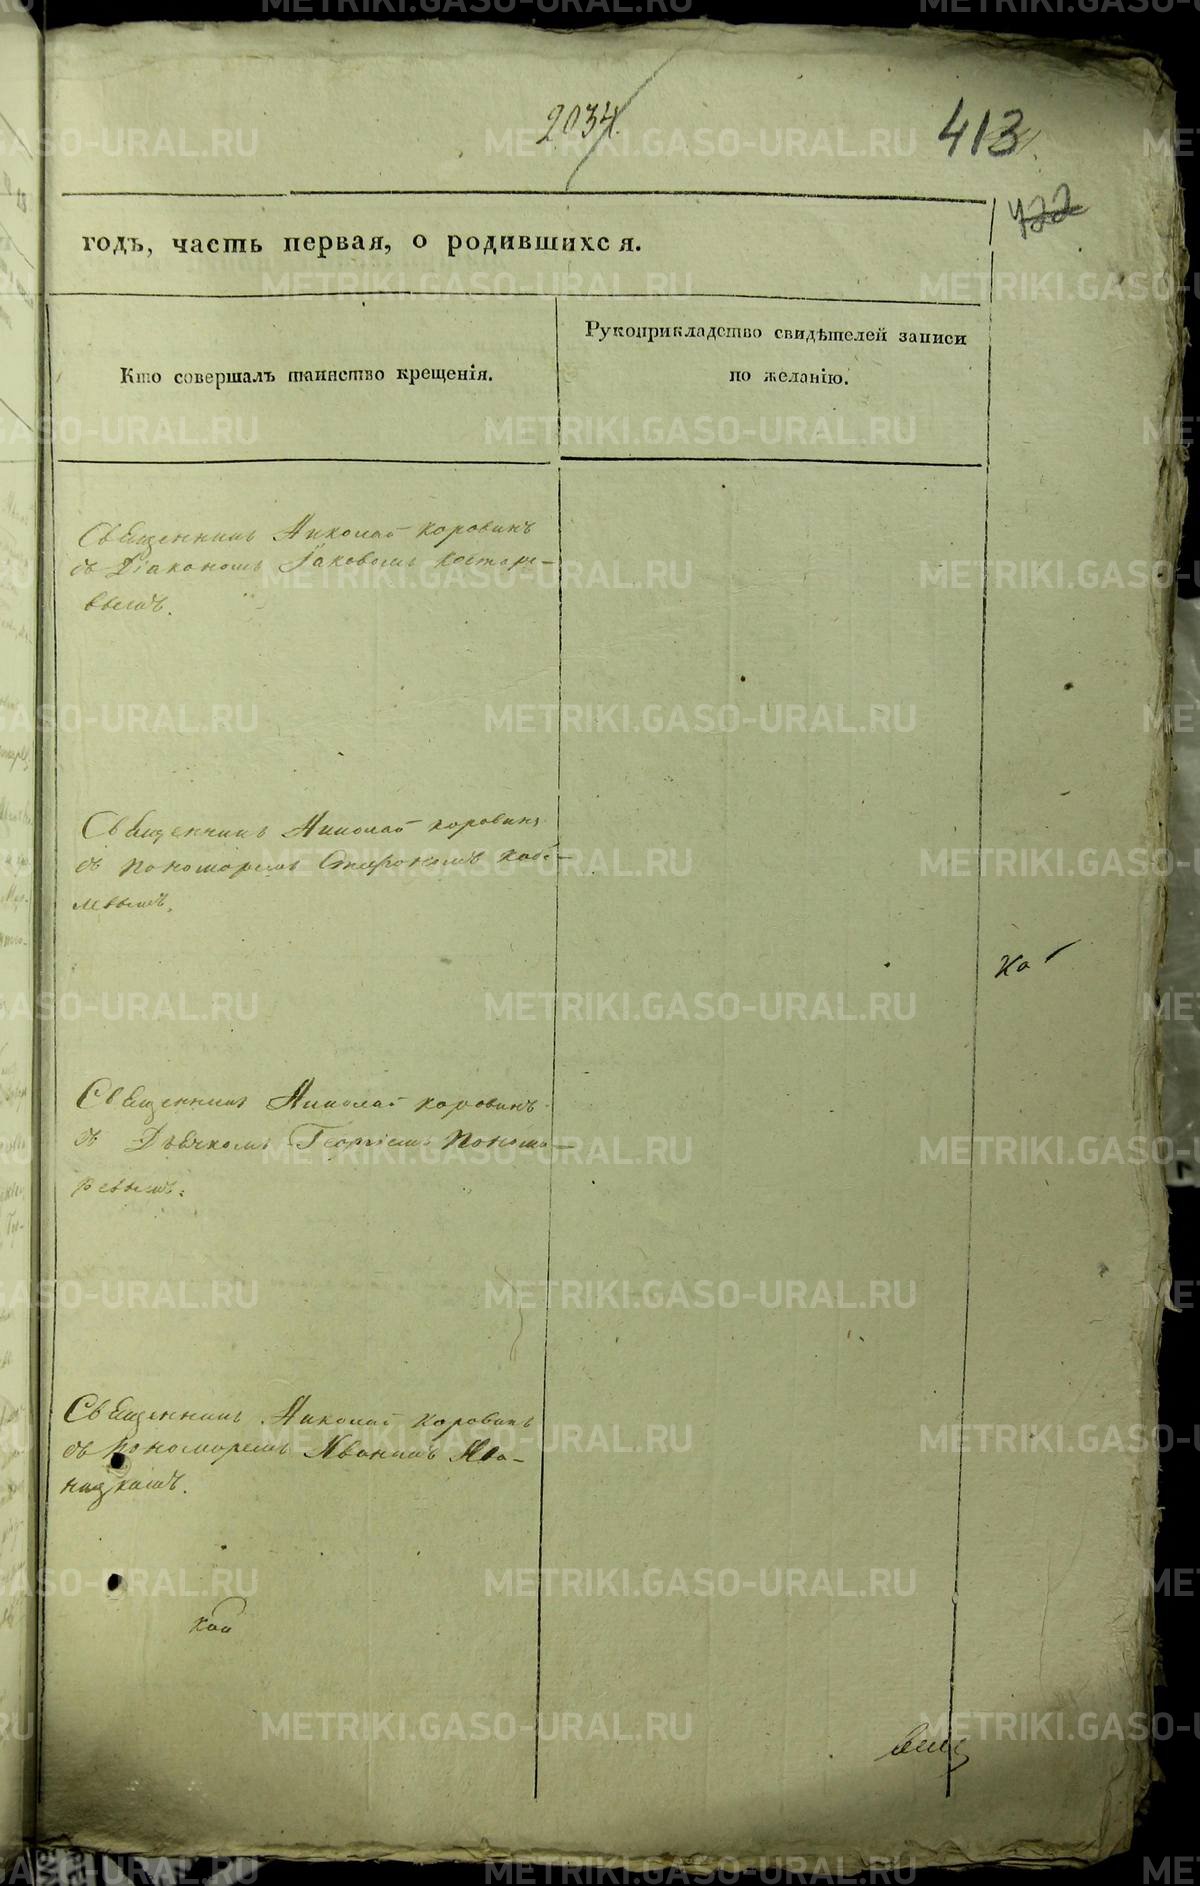 2034
413
422
годъ, часть первая, о родившихся.
Кто совершалъ таинство крещенія.
Рукоприкладство свидѣтелей записи
по желанію.
Священникъ Николай Коровинъ
съ Діакономъ Іаковомъ Костаре-
вымъ.
Священникъ Николай Коровинъ
съ пономаремъ
Священникъ Николай Коровинъ
съ Дьячкомъ Георгіемъ Понома-
ревымъ.
Священникъ Николай Коровинъ
съ пономаремъ Иваномъ
METRIKI.GASO-URAL.RU